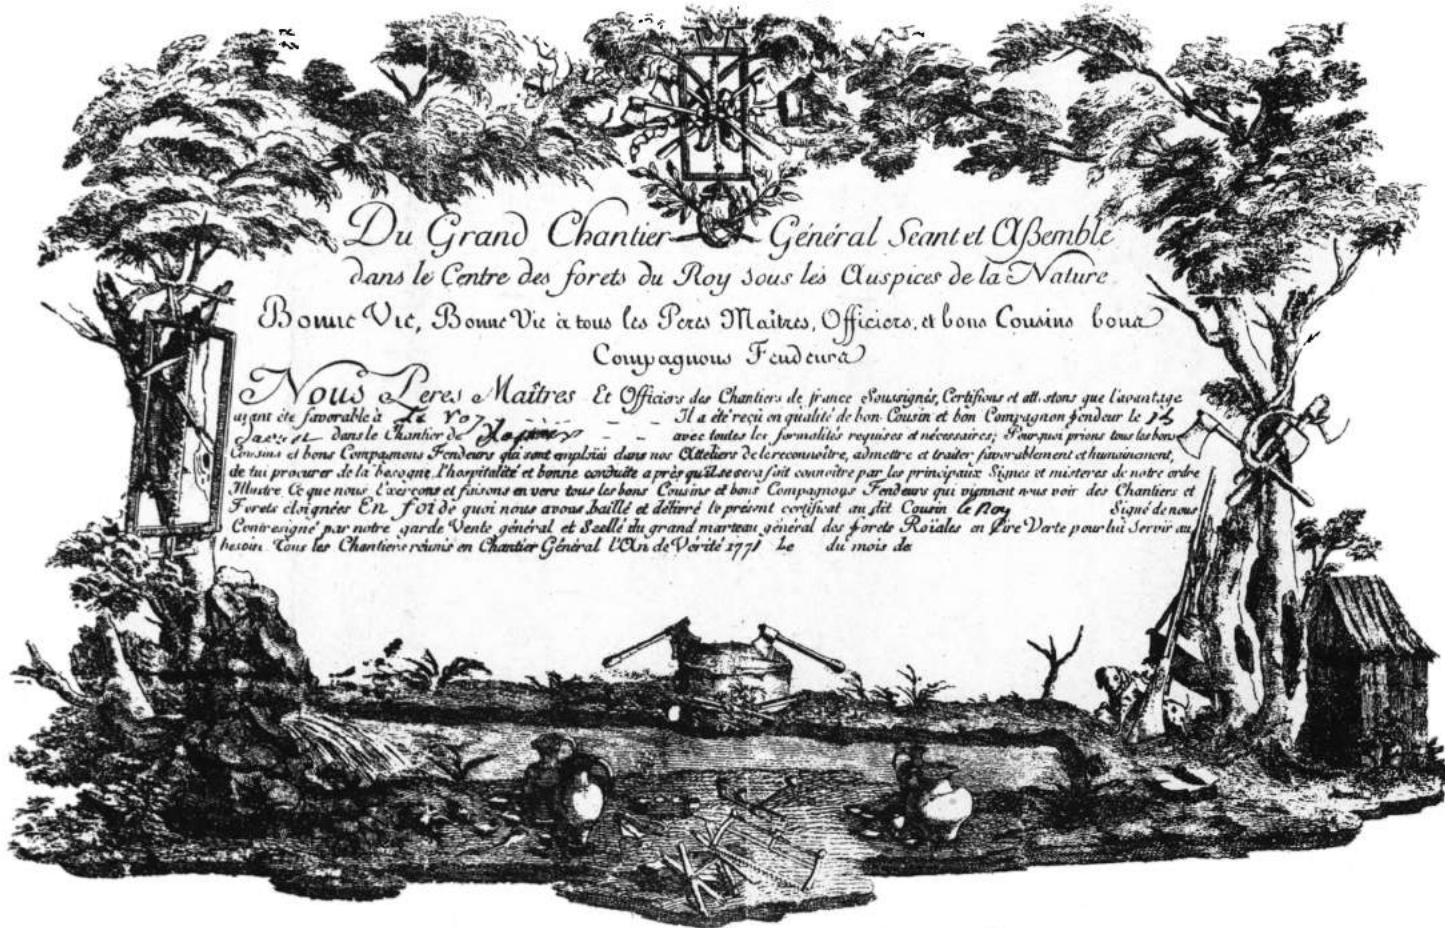 Du Grand Chantier Général Seant et Aßemble
dans le Centre des forets du Roy sous les Auspices de la Nature
Bonne Vie, Bonne Vie à tous les Peres Maîtres, Officiers, et bons Cousins bons
Compagnons Fendeurs
Nous Peres Maîtres Et Officiers des Chantiers de france Soussignés, Certifions et attestons que l'avantage
aiant été favorable à Le Roy Il a été reçu en qualité de bon Cousin et bon Compagnon fendeur le
dans le Chantier de avec toutes les formalités requises et nécessaires; Pourquoi prions tous les bons
Cousins et bons Compagnons Fendeurs qui sont emploiés dans nos Atteliers de le reconnoître, admettre et traiter favorablement et humainement,
de lui procurer de la besogne, l'hospitalité et bonne conduite après qu'il se sera fait connoître par les principaux Signes et misteres de notre ordre
Illustre, Ce que nous Exerçons et faisons en vers tous les bons Cousins et bons Compagnons Fendeurs qui viennent nous voir des Chantiers et
Forets eloignées En foi de quoi nous avons baillé et délivré le présent certificat au dit Cousin le Roy Signé de nous
Contresigné par notre garde Vente général et Scellé du grand marteau général des forets Roïales en Cire Verte pour lui Servir au
besoin Tous les Chantiers réunis en Chantier Général l'An de Vérité 1771 Le du mois de